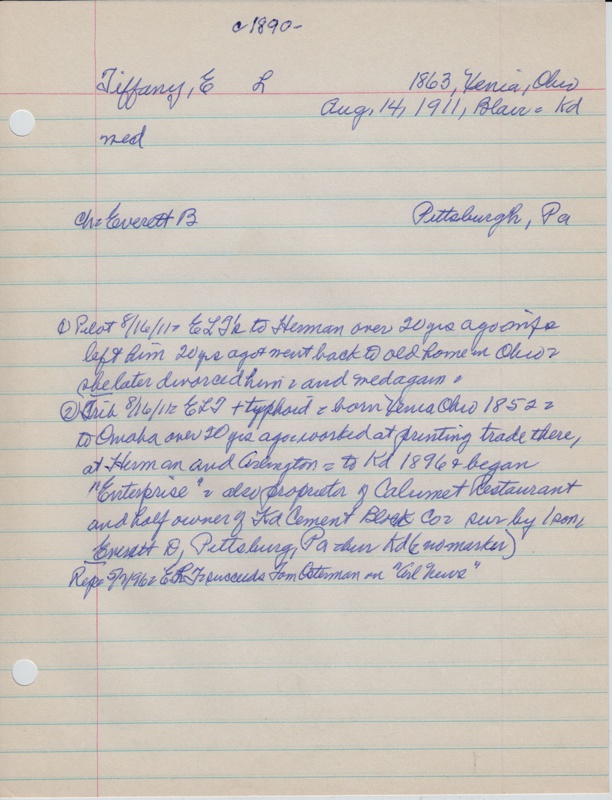 c1890-
Tiffany, E L 1863, Xenia, Ohio
Aug. 14, 1911, Blair = Kd
med
Ch= Everett B Pittsburgh, Pa
① Pilot 8/16/11= ELT to Herman over 20 yrs ago =
left him 20 yrs ago + went back to old home in Ohio =
she later divorced him = and med again =
② Trib 8/16/11= ELT + typhoid = born Xenia Ohio 1852 =
to Omaha over 20 yrs ago = worked at printing trade there,
at Herman and Arlington = to Kd 1896 + began
"Enterprise" = also proprietor of Calumet Restaurant
and half owner of Kd Cement Block Co = sur by 1 son,
Everett D, Pittsburg, Pa = bur Kd (no marker)
Rep= 5/7/96= ELT succeeds Tom Osterman on "Arl News"